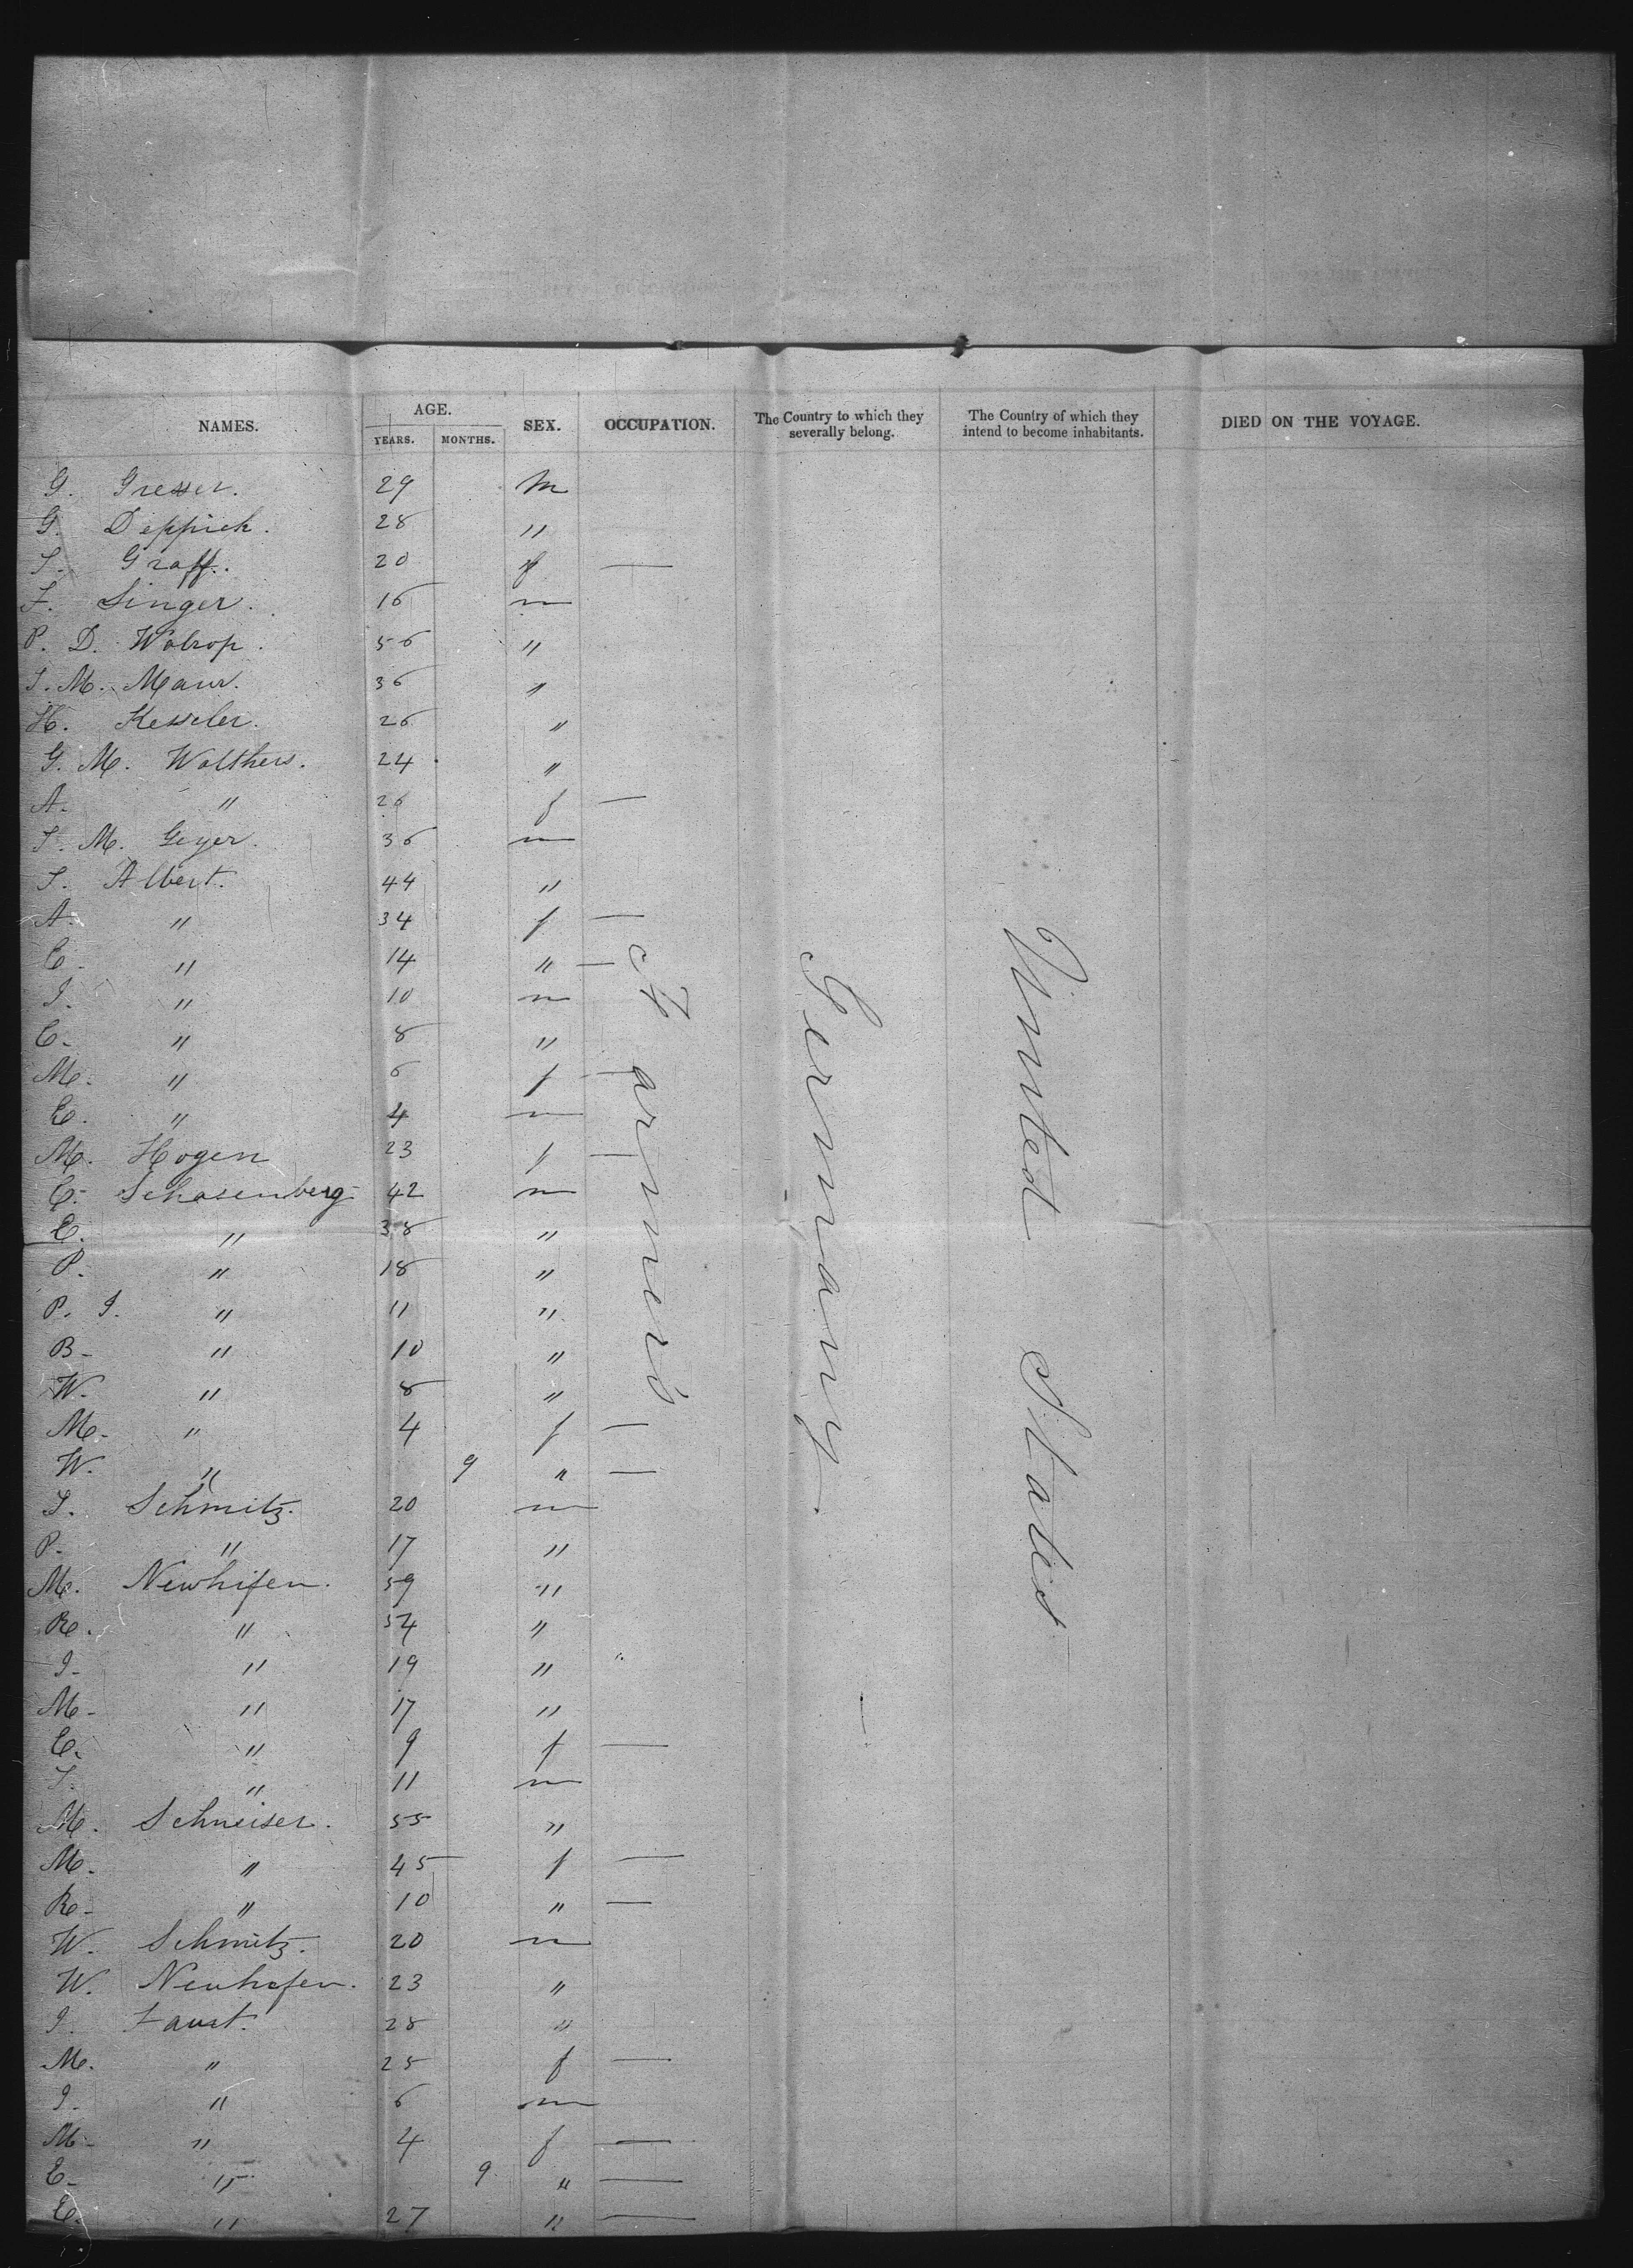 NAMES. AGE. SEX. OCCUPATION. The Country to which they severally belong. The Country of which they intend to become inhabitants. DIED ON THE VOYAGE.
YEARS. MONTHS.
G. Gresser. 29 m
G. Deppich. 28 "
S. Graff. 20 f —
F. Singer. 16 m
P. D. Wolrop. 56 "
J. M. Maur. 36 "
H. Kessler. 26 "
G. M. Walthers. 24 "
A. " 26 f —
J. M. Geyer. 36 m
J. Albert. 44 "
A. " 34 f —
C. " 14 " —
J. " 10 m
C. " 8 "
M. " 6 f —
E. " 4 m
M. Hogen 23 f —
C. Schasenberg 42 m
E. " 38 "
P. " 18 "
P. J. " 11 "
B. " 10 "
W. " 8 "
M. " 4 f —
W. " 9 " —
J. Schmitz. 20 m
P. " 17 "
M. Newhifen. 59 "
R. " 54 "
J. " 19 "
M. " 17 "
C. " 9 f —
J. " 11 m
M. Schneiser. 55 "
M. " 45 f —
R. " 10 " —
W. Schmitz. 20 m
W. Neuhofen. 23 "
J. Faust. 28 "
M. " 25 f —
J. " 6 m
M. " 4 f —
E. " 9 " —
E. " 27 " —
Farmers
Germany.
United States